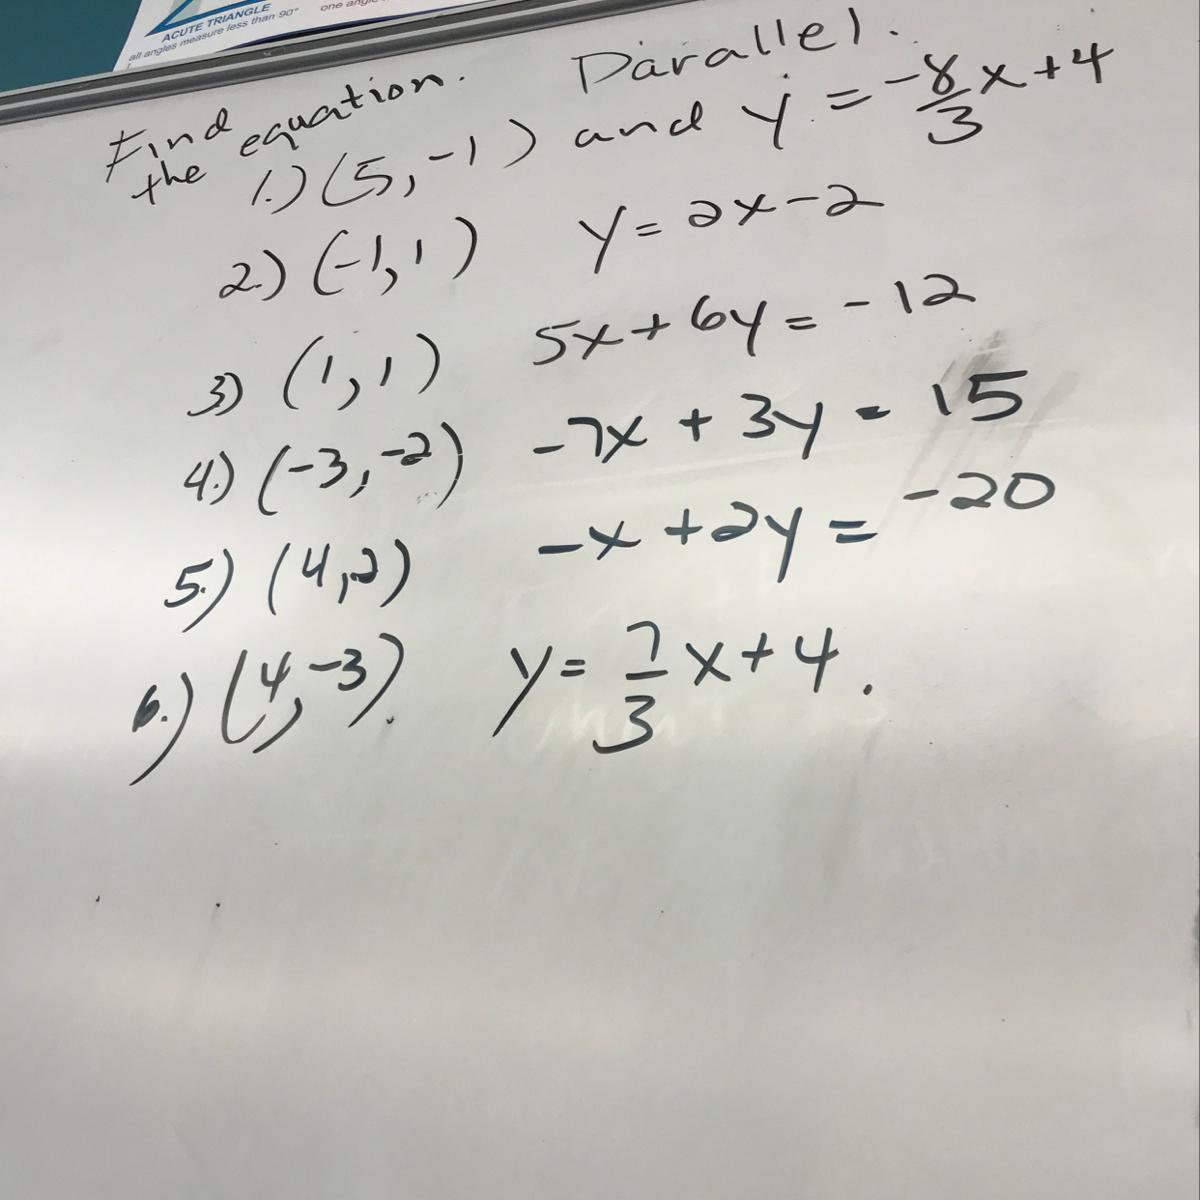 ACUTE TRIANGLE
all angles measure less than 90°
one angle
Find the equation. Parallel.
1.) (5, -1) and y = -8/3 x + 4
2.) (-1, 1) y = 2x - 2
3) (1, 1) 5x + 6y = -12
4.) (-3, -2) -7x + 3y = 15
5.) (4, 2) -x + 2y = -20
6.) (4, -3). y = 7/3 x + 4.